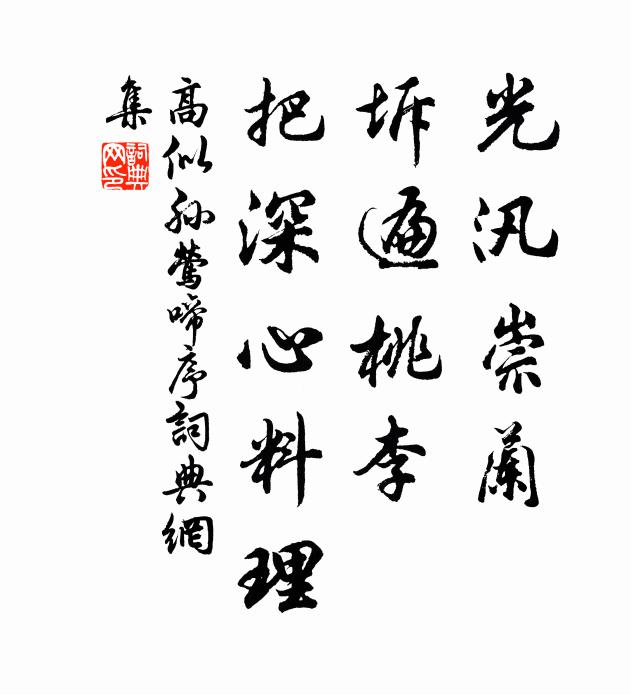 光汎崇蘭
坼遍桃李
把深心料理
高似孫鶯啼序詞典網
集
詞典
网印